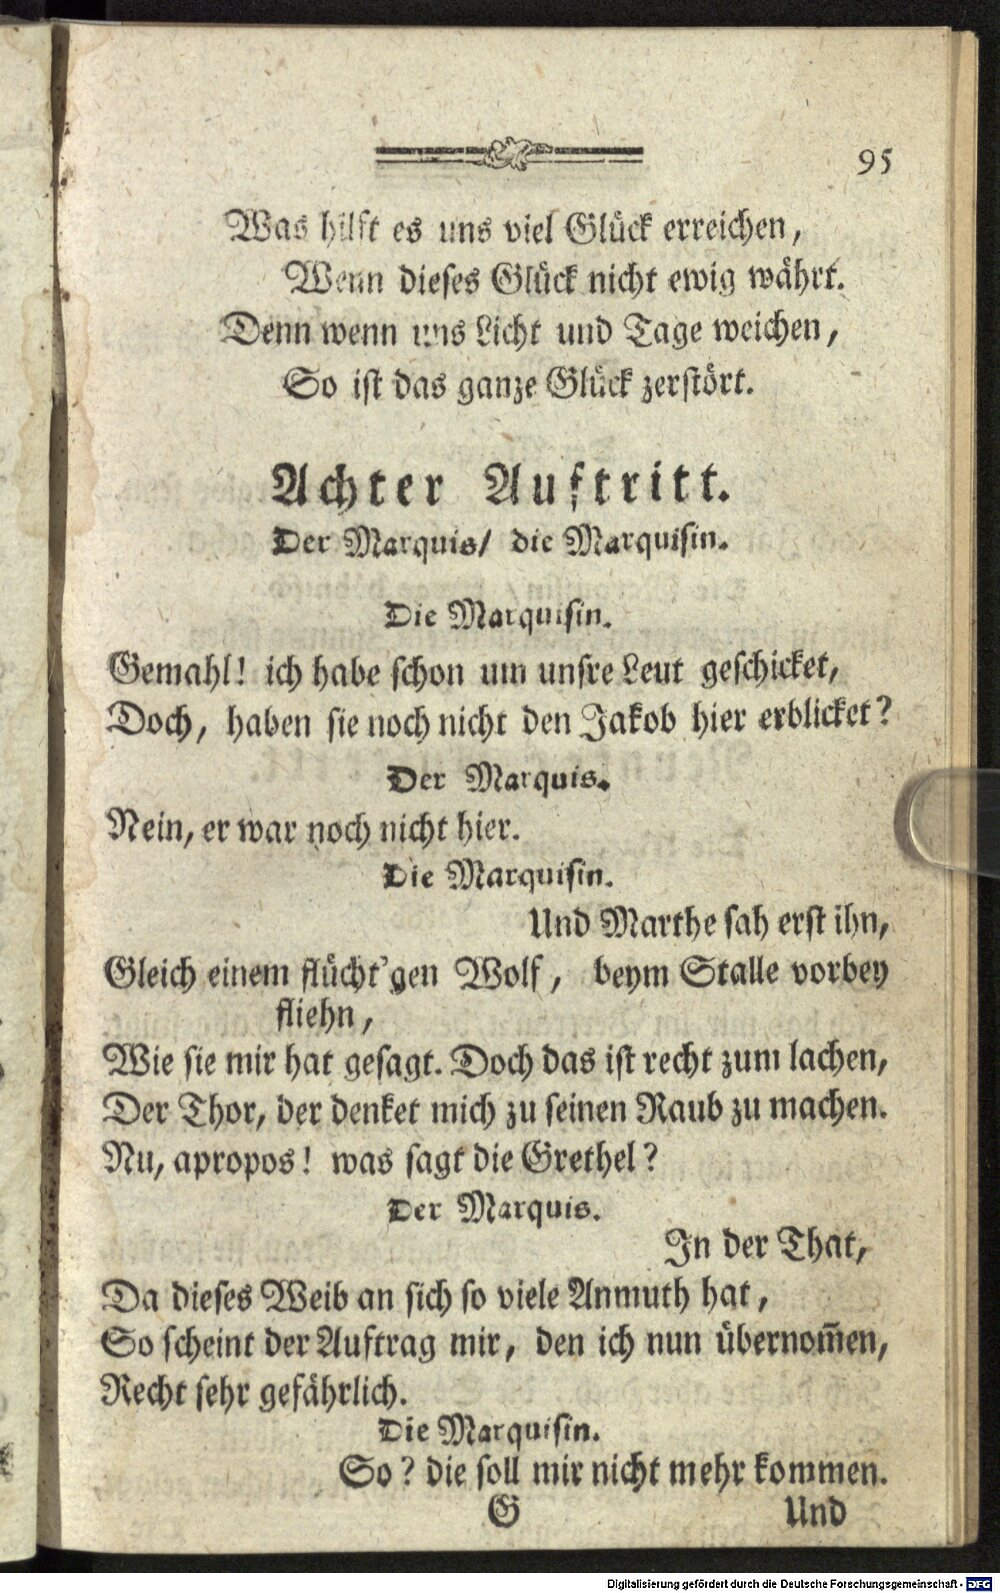 95
Was hilft es uns viel Glück erreichen,
Wenn dieses Glück nicht ewig währt.
Denn wenn uns Licht und Tage weichen,
So ist das ganze Glück zerstört.
Achter Auftritt.
Der Marquis/ die Marquisin.
Die Marquisin.
Gemahl! ich habe schon um unsre Leut geschicket,
Doch, haben sie noch nicht den Jakob hier erblicket?
Der Marquis.
Nein, er war noch nicht hier.
Die Marquisin.
Und Marthe sah erst ihn,
Gleich einem flücht'gen Wolf, beym Stalle vorbey
fliehn,
Wie sie mir hat gesagt. Doch das ist recht zum lachen,
Der Thor, der denket mich zu seinen Raub zu machen.
Nu, apropos! was sagt die Grethel?
Der Marquis.
In der That,
Da dieses Weib an sich so viele Anmuth hat,
So scheint der Auftrag mir, den ich nun übernom̅en,
Recht sehr gefährlich.
Die Marquisin.
So? die soll mir nicht mehr kommen.
G Und
Digitalisierung gefördert durch die Deutsche Forschungsgemeinschaft - DFG